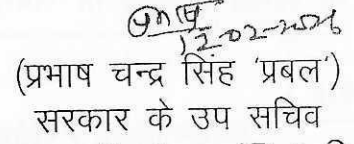 12-02-2026
(प्रभाष चन्द्र सिंह 'प्रबल')
सरकार के उप सचिव